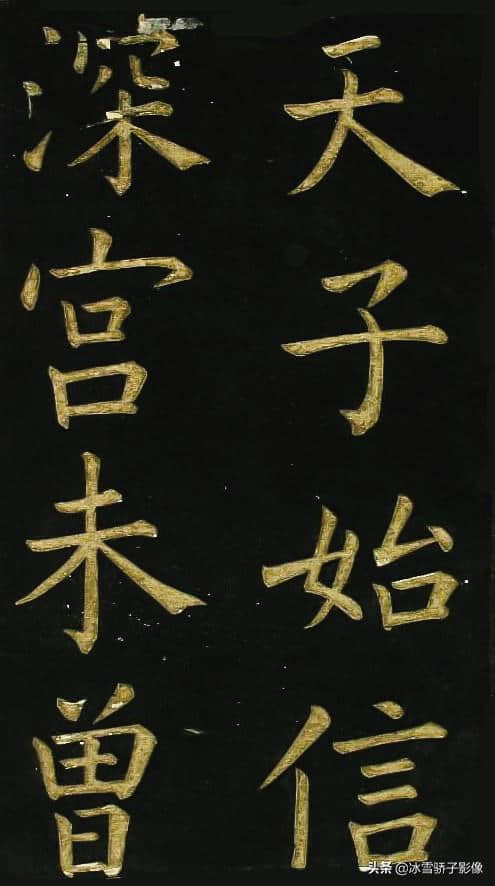 天子始信
深宫未曾
头条 @冰雪骄子影像